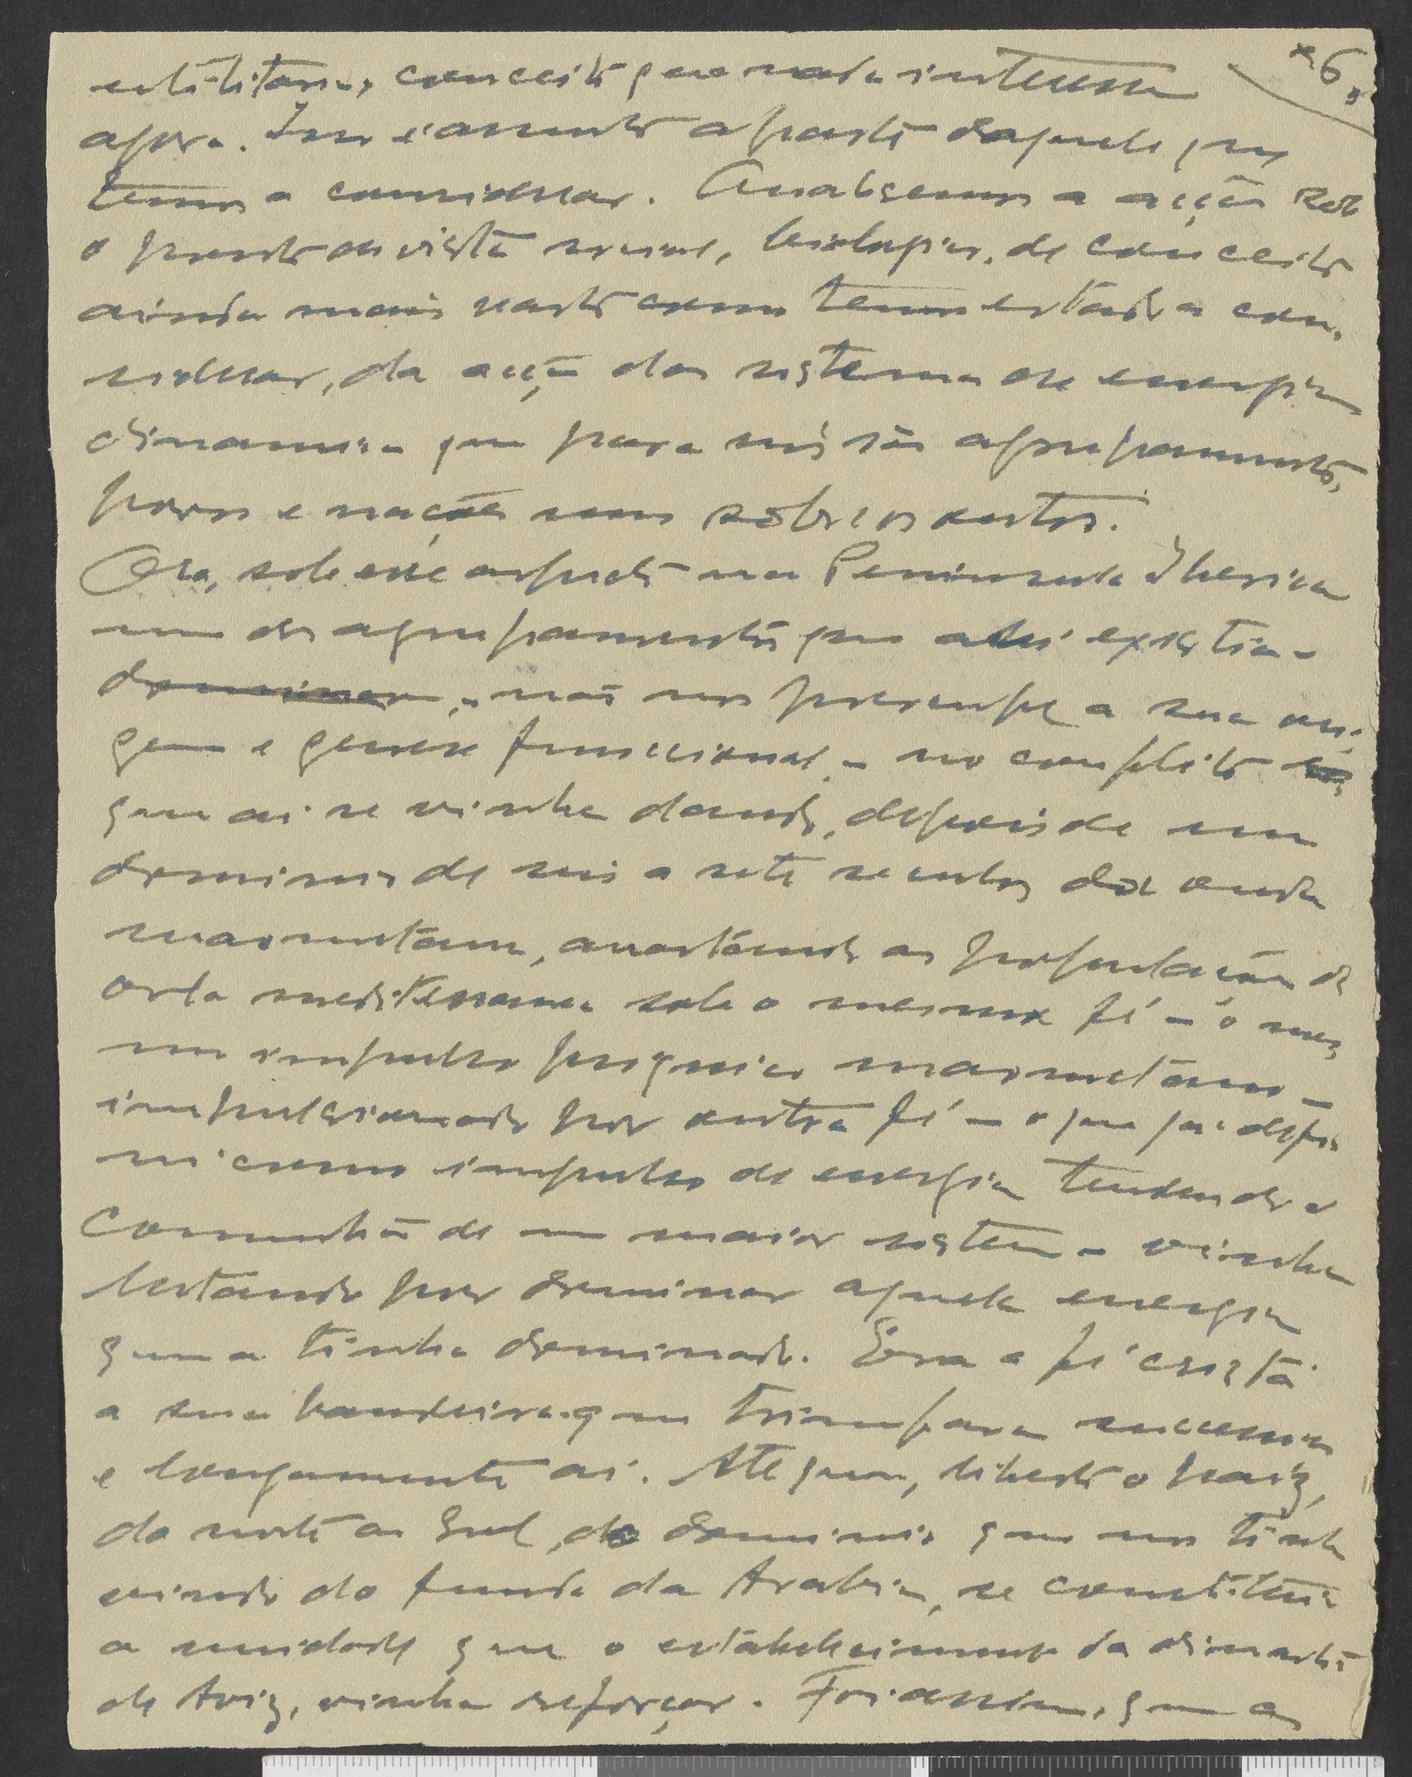 6
utilitario, conceito que nada interessa
agora. Isso é assunto a parte daquele que
temos a considerar. Analisemos a acção sob
o ponto de vista social, biologico, de conceito
ainda mais vasto como temos estado a con-
siderar, da acção dos sistemas de energia
dinamica que para nós são agrupamentos,
povos e nações uns sobre os outros.
Ora, sob esse aspecto na Peninsula Iberica
um dos agrupamentos que ali existia -
não nos preocupe a sua ori-
gem e genese funccional - no conflito
que ai se vinha dando, depois de um
dominio de seis a sete seculos da onda
maometana, arrastando as populações da
orla mediterranea sob a mesma fé - o mes-
mo impulso psiquico maometano -
impulsionado por outra fé - o que já defi-
ni como impulso de energia tendendo á
comunhão de um maior sistema - vinha
lutando por dominar aquela energia
que a tinha dominado. Era a fé cristã
a sua bandeira que triumfara
e longamente ai. Até que, liberto o paiz,
do norte ao Sul, do dominio que nos tinha
vindo do fundo da Arabia, se constituia
a unidade que o estabelecimento da dinastia
de Aviz, vinha reforçar. Foi assim, que as